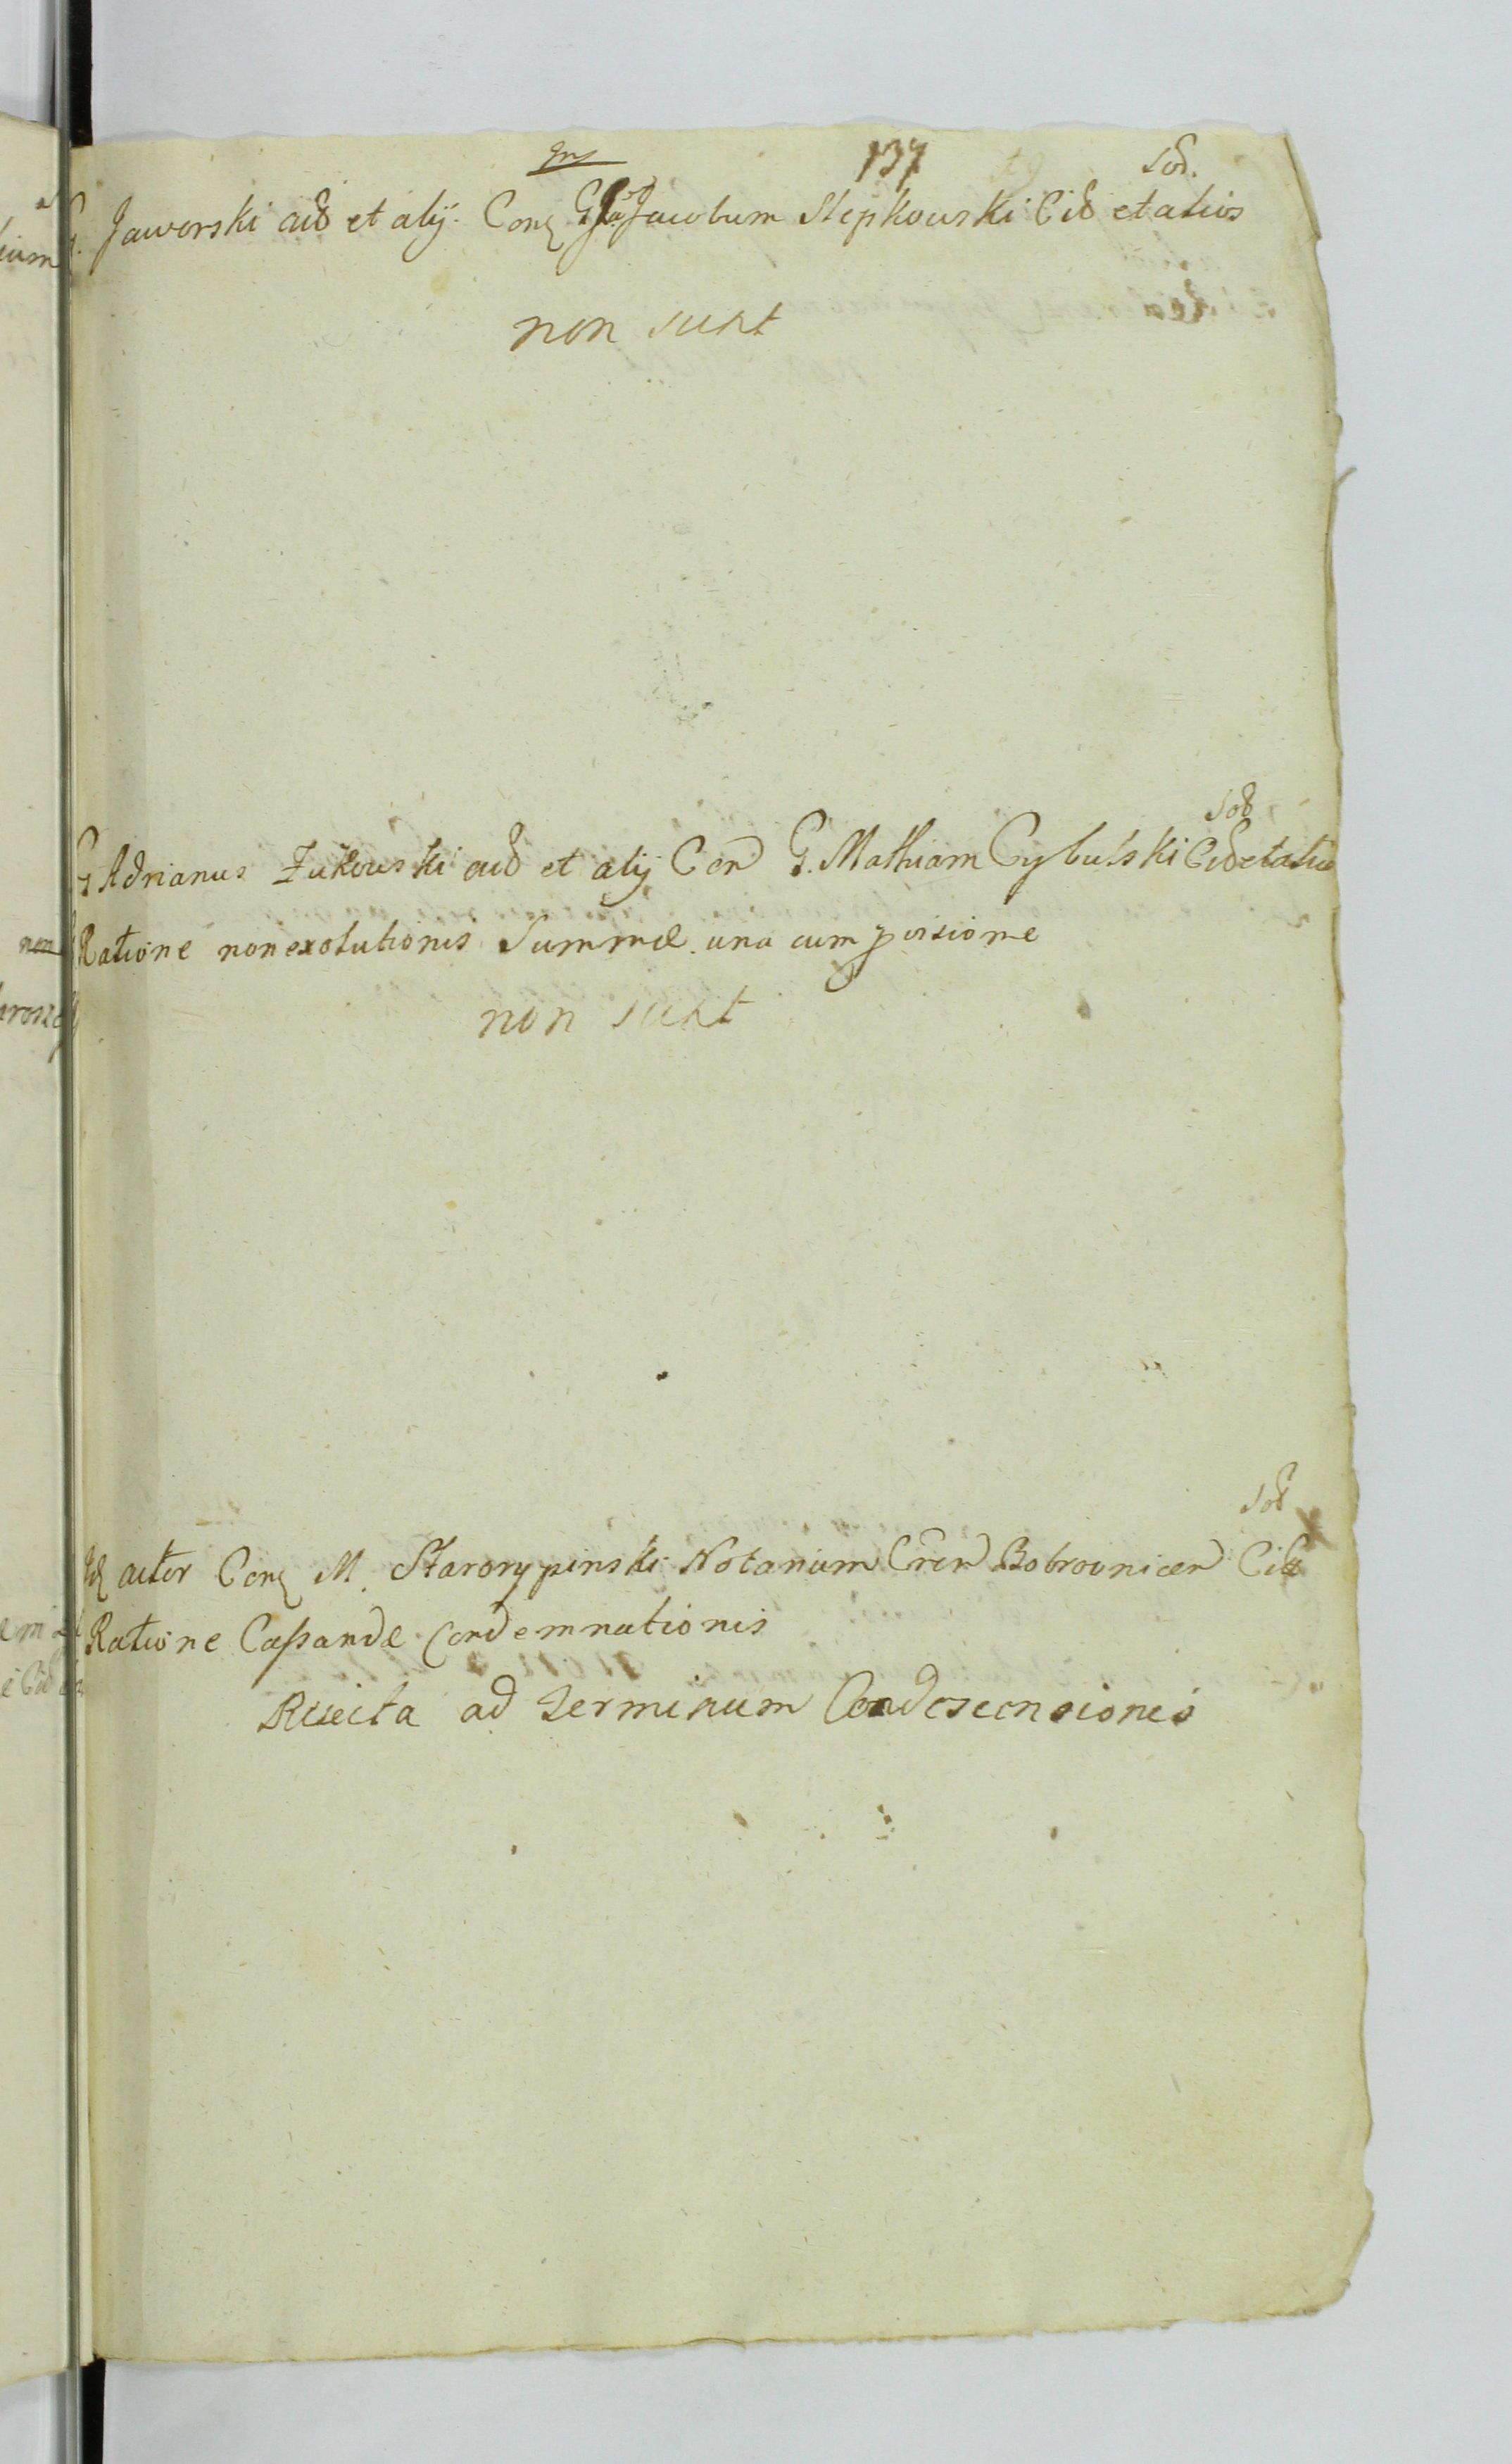 137
Sod.
G. Jaworski aid et alij. Conq G Jacobum Stepkowski Cid et alios
non sunt
Sod
G Adrianus Zukowski aid et alij Con G. Mathiam Cybulski Cid et alios
Ratione non exolutionis Summæ una cum provisione
non sunt
Sod
Id actor Conq M. Starorypinski Notarium Cren Bobrovnicen Cid
Ratione Cassandæ Condemnationis
Rejecta ad Terminum Condescensionis